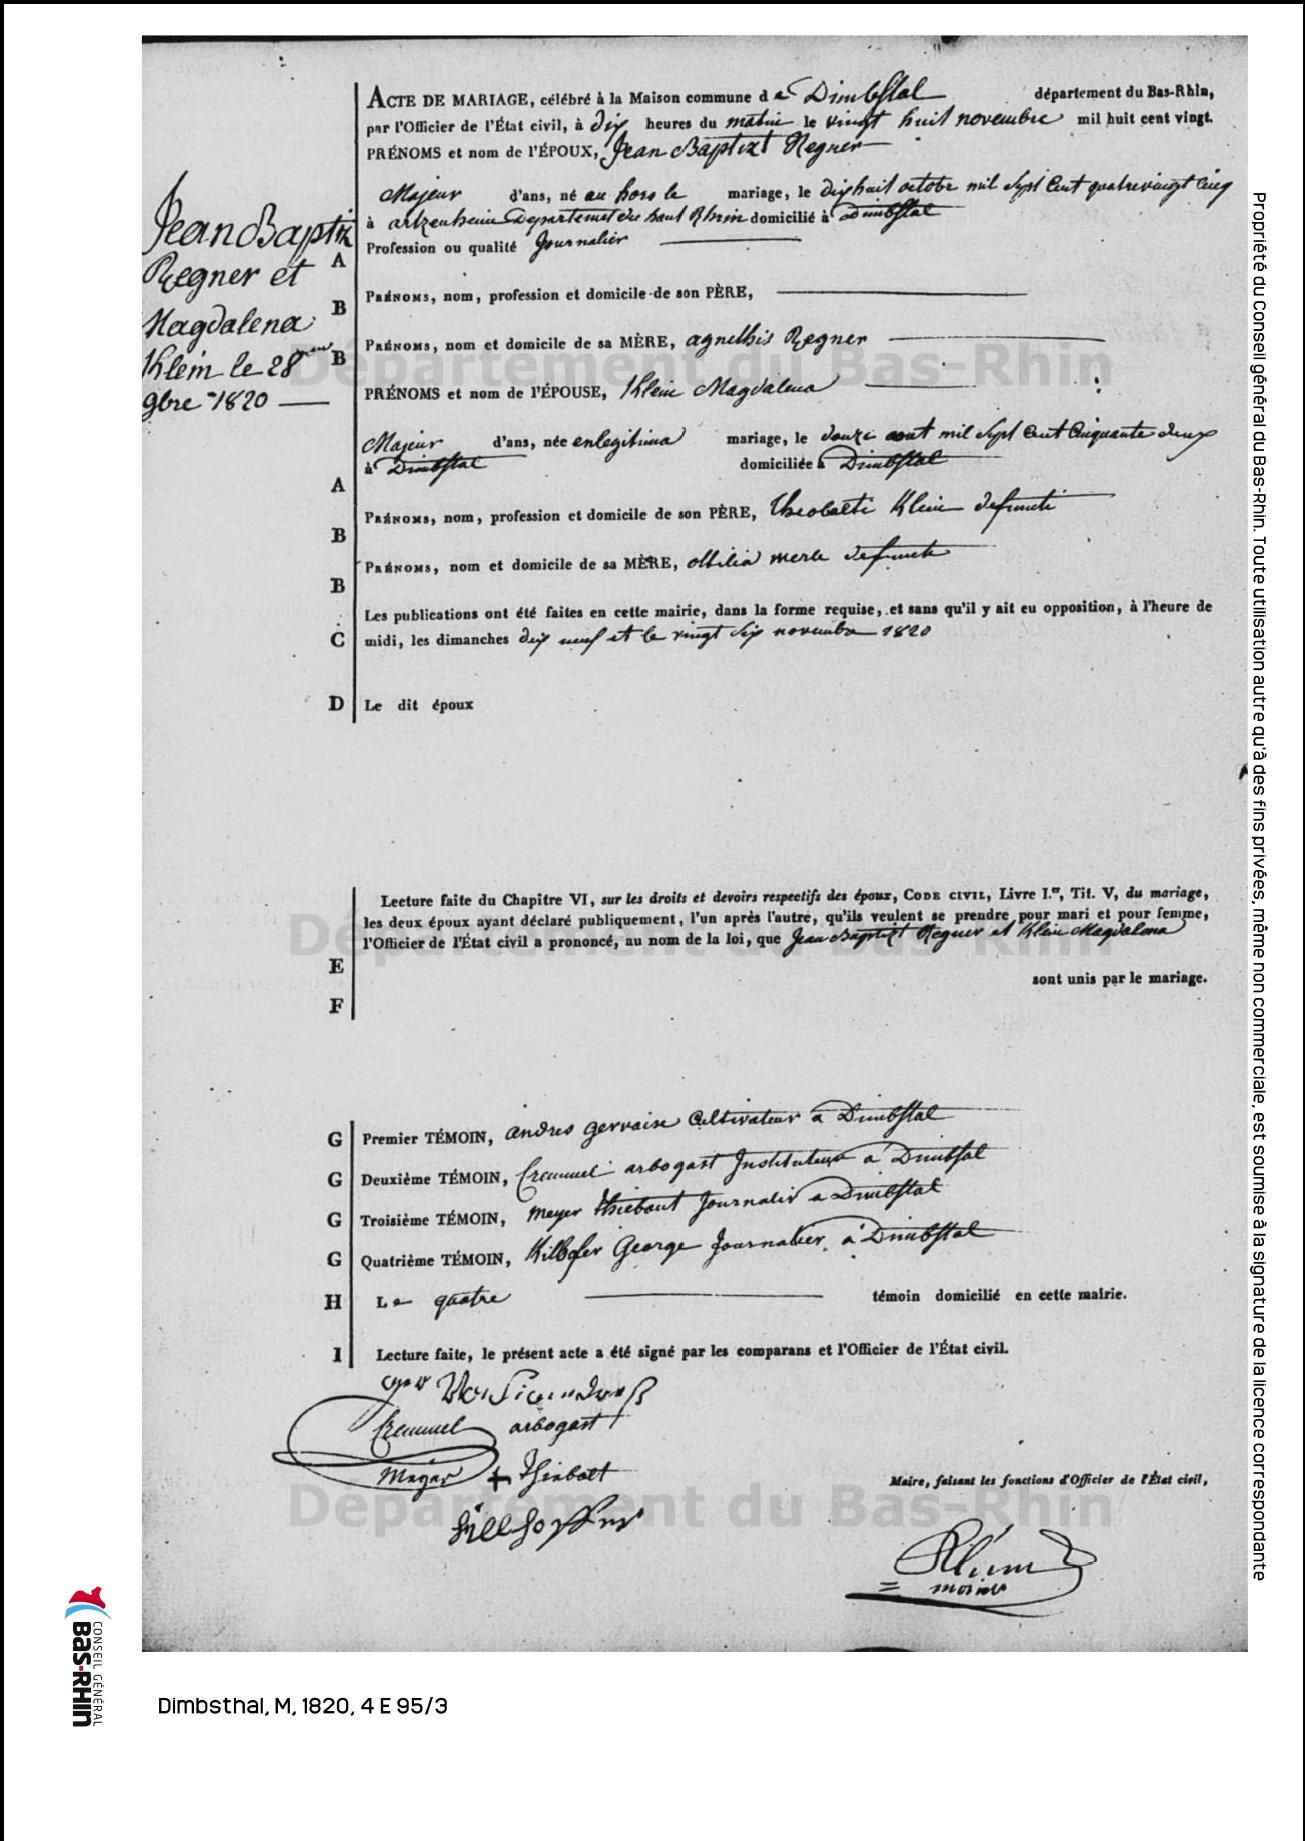 ACTE DE MARIAGE, célébré à la Maison commune de Dimbstal département du Bas-Rhin,
par l'Officier de l'État civil, à dix heures du matin le vingt huit novembre mil huit cent vingt.
PRÉNOMS et nom de l'ÉPOUX, Jean Baptizt Regner
Majeur d'ans, né au hors le mariage, le dixhuit octobe mil Sept Cent quatrevingt Cinq
à artzenheim Departemet du haut Rhin domicilié à Dimbstal
Profession ou qualité Journalier
Jean Baptiz
Regner et
Magdalena
Klein le 28
9bre 1820
A
B
B
PRÉNOMS, nom, profession et domicile de son PÈRE,
PRÉNOMS, nom et domicile de sa MÈRE, agnethis Regner
PRÉNOMS et nom de l'ÉPOUSE, Klein Magdalena
Majeur d'ans, née enlegitima mariage, le douze aout mil Sept Cent Cinquante deux
à Dimbstal domiciliée à Dimbstal
A
PRÉNOMS, nom, profession et domicile de son PÈRE, Theobalti Klein defuncti
B
PRÉNOMS, nom et domicile de sa MÈRE, ottilia merle defuncte
B
Les publications ont été faites en cette mairie, dans la forme requise, et sans qu'il y ait eu opposition, à l'heure de
C midi, les dimanches dix neuf et le vingt Six novembe 1820
D Le dit époux
Lecture faite du Chapitre VI, sur les droits et devoirs respectifs des époux, CODE CIVIL, Livre I.er, Tit. V, du mariage,
les deux époux ayant déclaré publiquement, l'un après l'autre, qu'ils veulent se prendre pour mari et pour femme,
l'Officier de l'État civil a prononcé, au nom de la loi, que Jean Baptizt Regner et Klein Magdalena
E
sont unis par le mariage.
F
G Premier TÉMOIN, andres gervaise Cultivateur a Dimbstal
G Deuxième TÉMOIN, Cremmel arbogast Instituteur a Dimbstal
G Troisième TÉMOIN, Meyer Thiebaut Journalir a Dimbstal
G Quatrième TÉMOIN, Kilhofer George Journalier à Dimbstal
H Le quatre témoin domicilié en cette mairie.
I Lecture faite, le présent acte a été signé par les comparans et l'Officier de l'État civil.
Cremmel arbogast
Mayer + Thiebolt
Maire, faisant les fonctions d'Officier de l'État civil,
Département du Bas-Rhin
Département du Bas-Rhin
Département du Bas-Rhin
Propriété du Conseil général du Bas-Rhin. Toute utilisation autre qu'à des fins privées, même non commerciale, est soumise à la signature de la licence correspondante
CONSEIL GÉNÉRAL
BAS-RHIN
Dimbsthal, M, 1820, 4 E 95/3